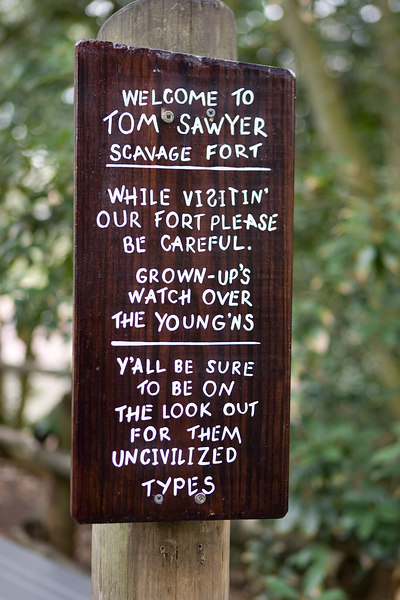 WELCOME TO
TOM SAWYER
SCAVAGE FORT
WHILE VISITIN'
OUR FORT PLEASE
BE CAREFUL.
GROWN-UP'S
WATCH OVER
THE YOUNG'NS
Y'ALL BE SURE
TO BE ON
THE LOOK OUT
FOR THEM
UNCIVILIZED
TYPES